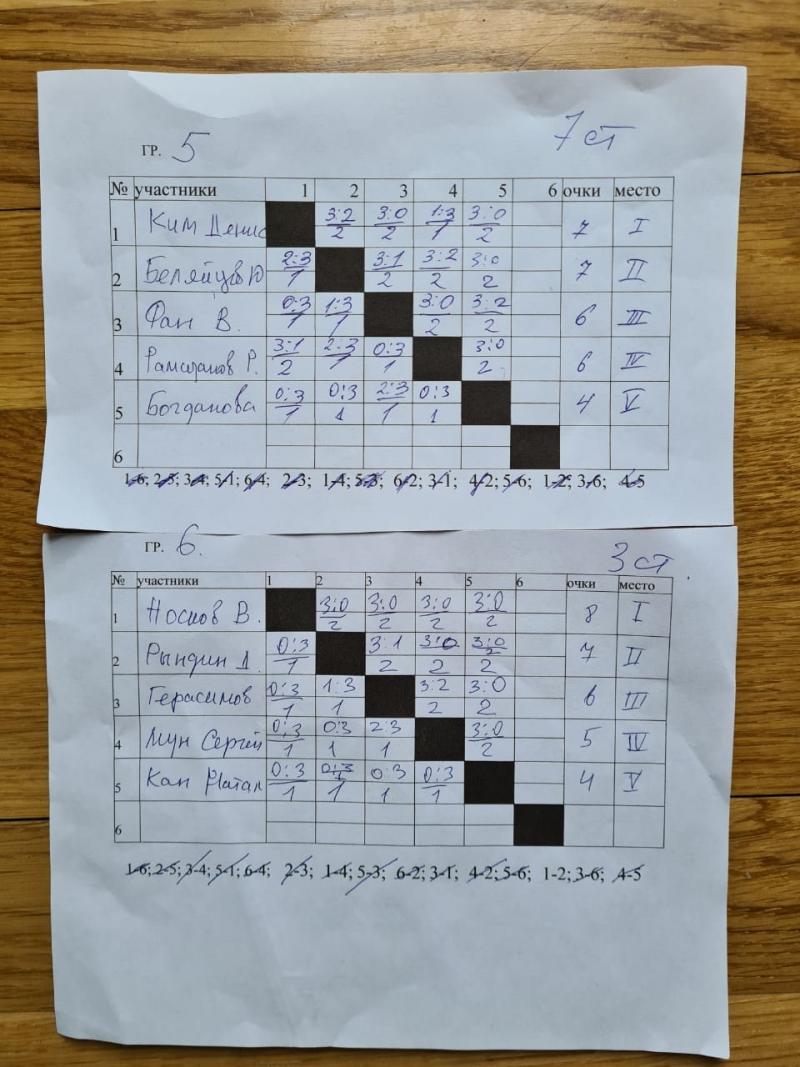 ГР. 5 7 ст
№ участники 1 2 3 4 5 6 очки место
1 Ким Денис 3:2 2 3:0 2 1:3 1 3:0 2 7 I
2 Беляйцев Ю 2:3 1 3:1 2 3:2 2 3:0 2 7 II
3 Фан В. 0:3 1 1:3 1 3:0 2 3:2 2 6 III
4 Рамазанов Р. 3:1 2 2:3 1 0:3 1 3:0 2 6 IV
5 Богданова 0:3 1 0:3 1 2:3 1 0:3 1 4 V
6
1-6; 2-5; 3-4; 5-1; 6-4; 2-3; 1-4; 5-3; 6-2; 3-1; 4-2; 5-6; 1-2; 3-6; 4-5
ГР. 6. 3 ст
№ участники 1 2 3 4 5 6 очки место
1 Носков В. 3:0 2 3:0 2 3:0 2 3:0 2 8 I
2 Рындин Д. 0:3 1 3:1 2 3:0 2 3:0 2 7 II
3 Герасимов 0:3 1 1:3 1 3:2 2 3:0 2 6 III
4 Мун Сергей 0:3 1 0:3 1 2:3 1 3:0 2 5 IV
5 Кан Натал 0:3 1 0:3 1 0:3 1 0:3 1 4 V
6
1-6; 2-5; 3-4; 5-1; 6-4; 2-3; 1-4; 5-3; 6-2; 3-1; 4-2; 5-6; 1-2; 3-6; 4-5